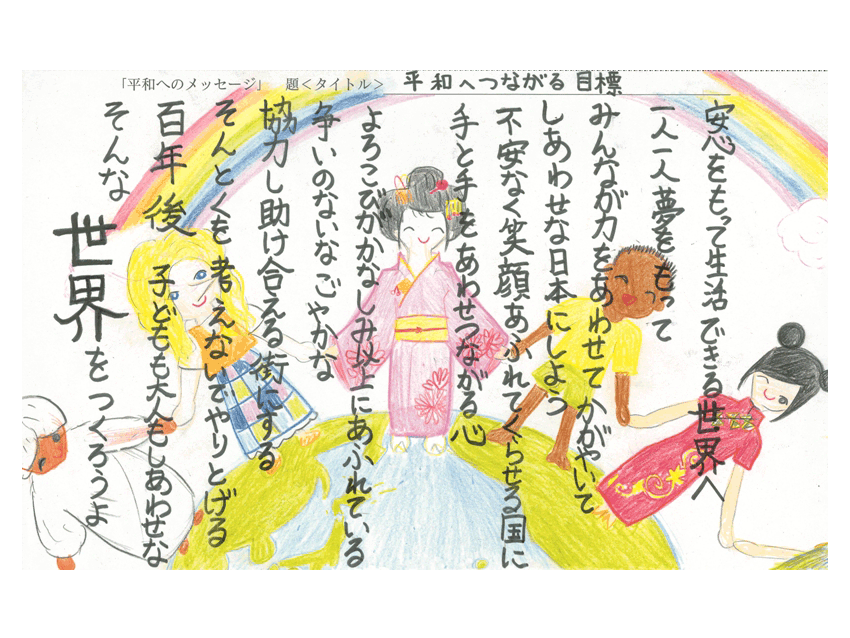 「平和へのメッセージ」　題＜タイトル＞　平和へつながる目標
安心をもって生活できる世界へ
一人一人夢をもって
みんなが力をあわせてかがやいて
しあわせな日本にしよう
不安なく笑顔あふれてくらせる国に
手と手をあわせつながる心
よろこびがかなしみ以上にあふれている
争いのないなごやかな
協力し助け合える街にする
そんとくを考えないでやりとげる
百年後　子どもも大人もしあわせな
そんな世界をつくろうよ